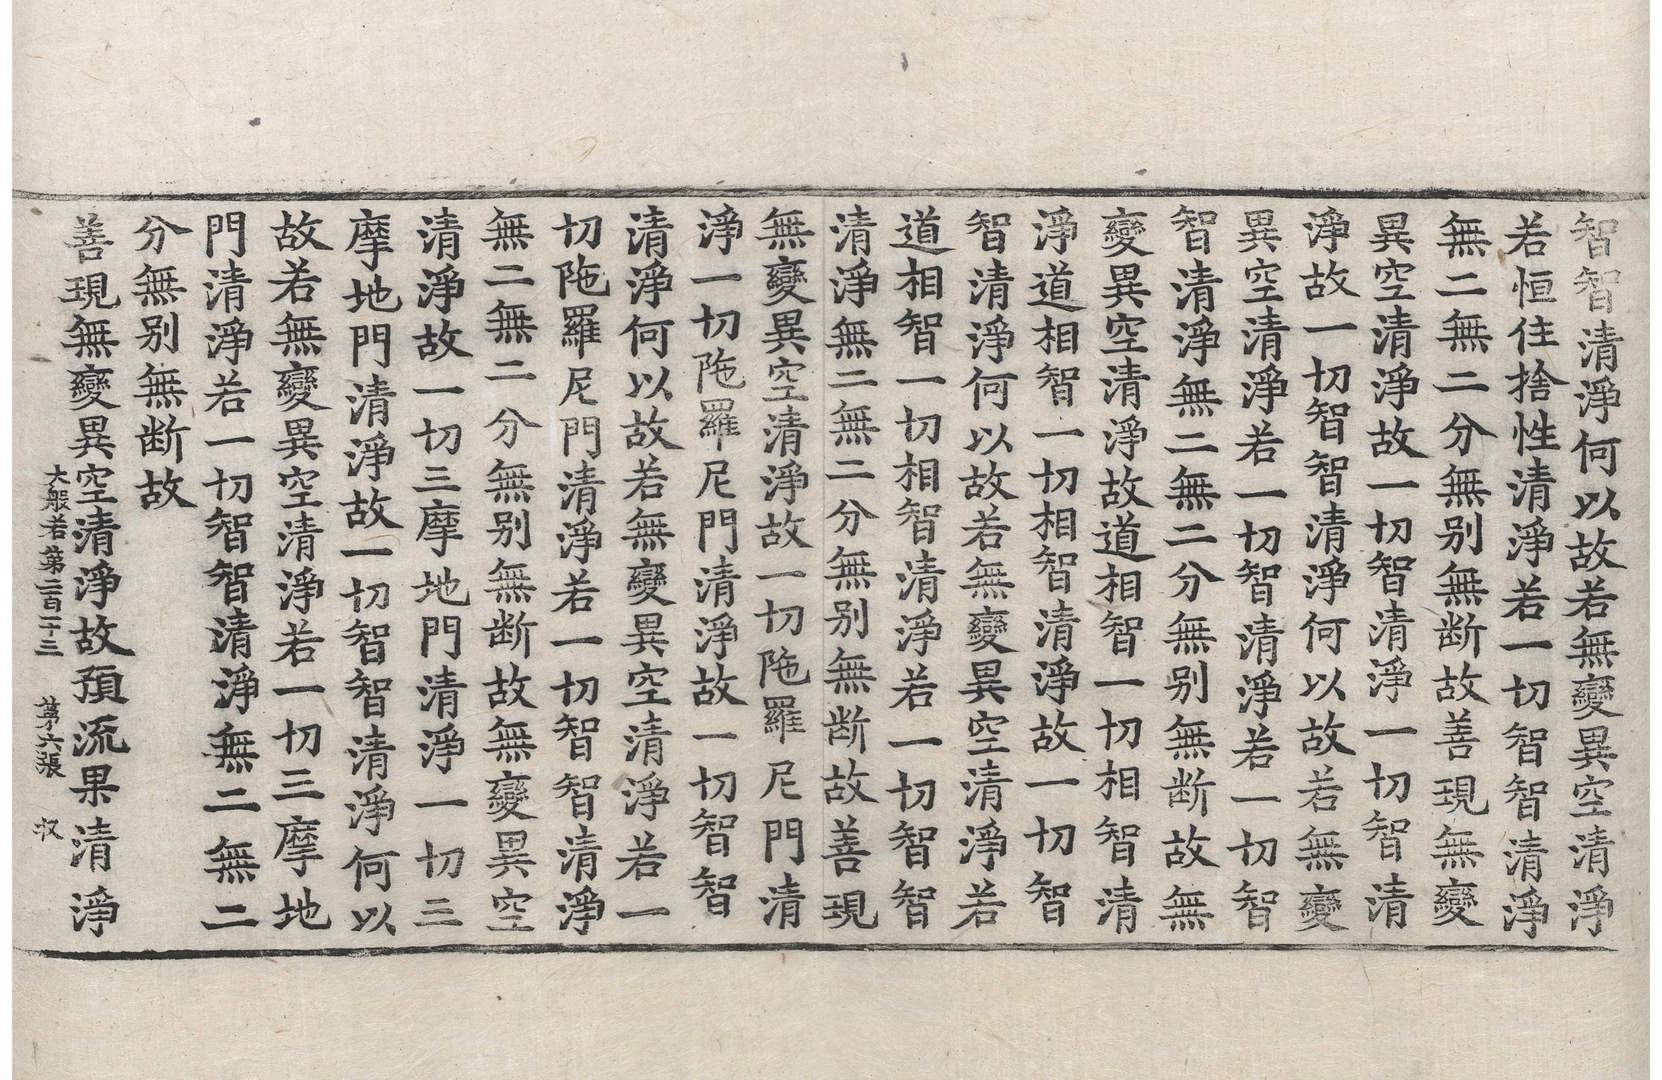 智智清淨何以故若無變異空清淨
若恒住捨性清淨若一切智智清淨
無二無二分無別無断故善現無變
異空清淨故一切智清淨一切智清
淨故一切智智清淨何以故若無變
異空清淨若一切智清淨若一切智
智清淨無二無二分無別無断故無
變異空清淨故道相智一切相智清
淨道相智一切相智清淨故一切智
智清淨何以故若無變異空清淨若
道相智一切相智清淨若一切智智
清淨無二無二分無別無断故善現
無變異空清淨故一切陁羅尼門清
淨一切陁羅尼門清淨故一切智智
清淨何以故若無變異空清淨若一
切陁羅尼門清淨若一切智智清淨
無二無二分無別無断故無變異空
清淨故一切三摩地門清淨一切三
摩地門清淨故一切智智清淨何以
故若無變異空清淨若一切三摩地
門清淨若一切智智清淨無二無二
分無別無断故
善現無變異空清淨故預流果清淨
大般若第二百二十三 第六張 收